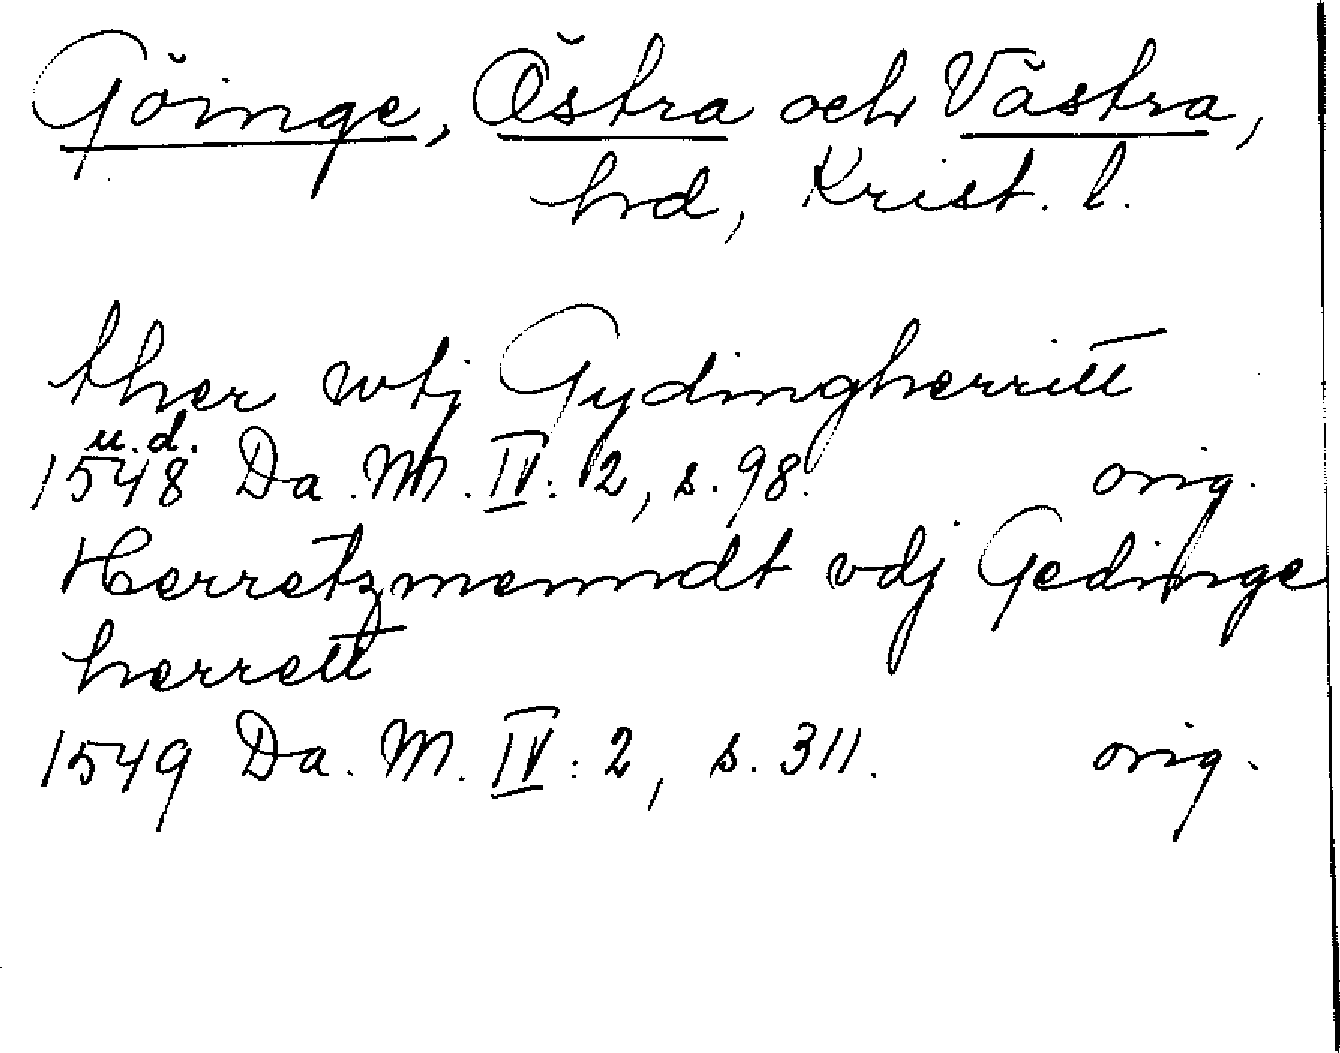 Göinge, Östra och Västra,
hrd, Krist. l.
ther wtj Gydingherritt
u.d.
1548 Da. M. IV: 2, s. 98. orig.
Herretzmenndt vdj Gedinge
herrett
1549 Da. M. IV: 2, s. 311. orig.